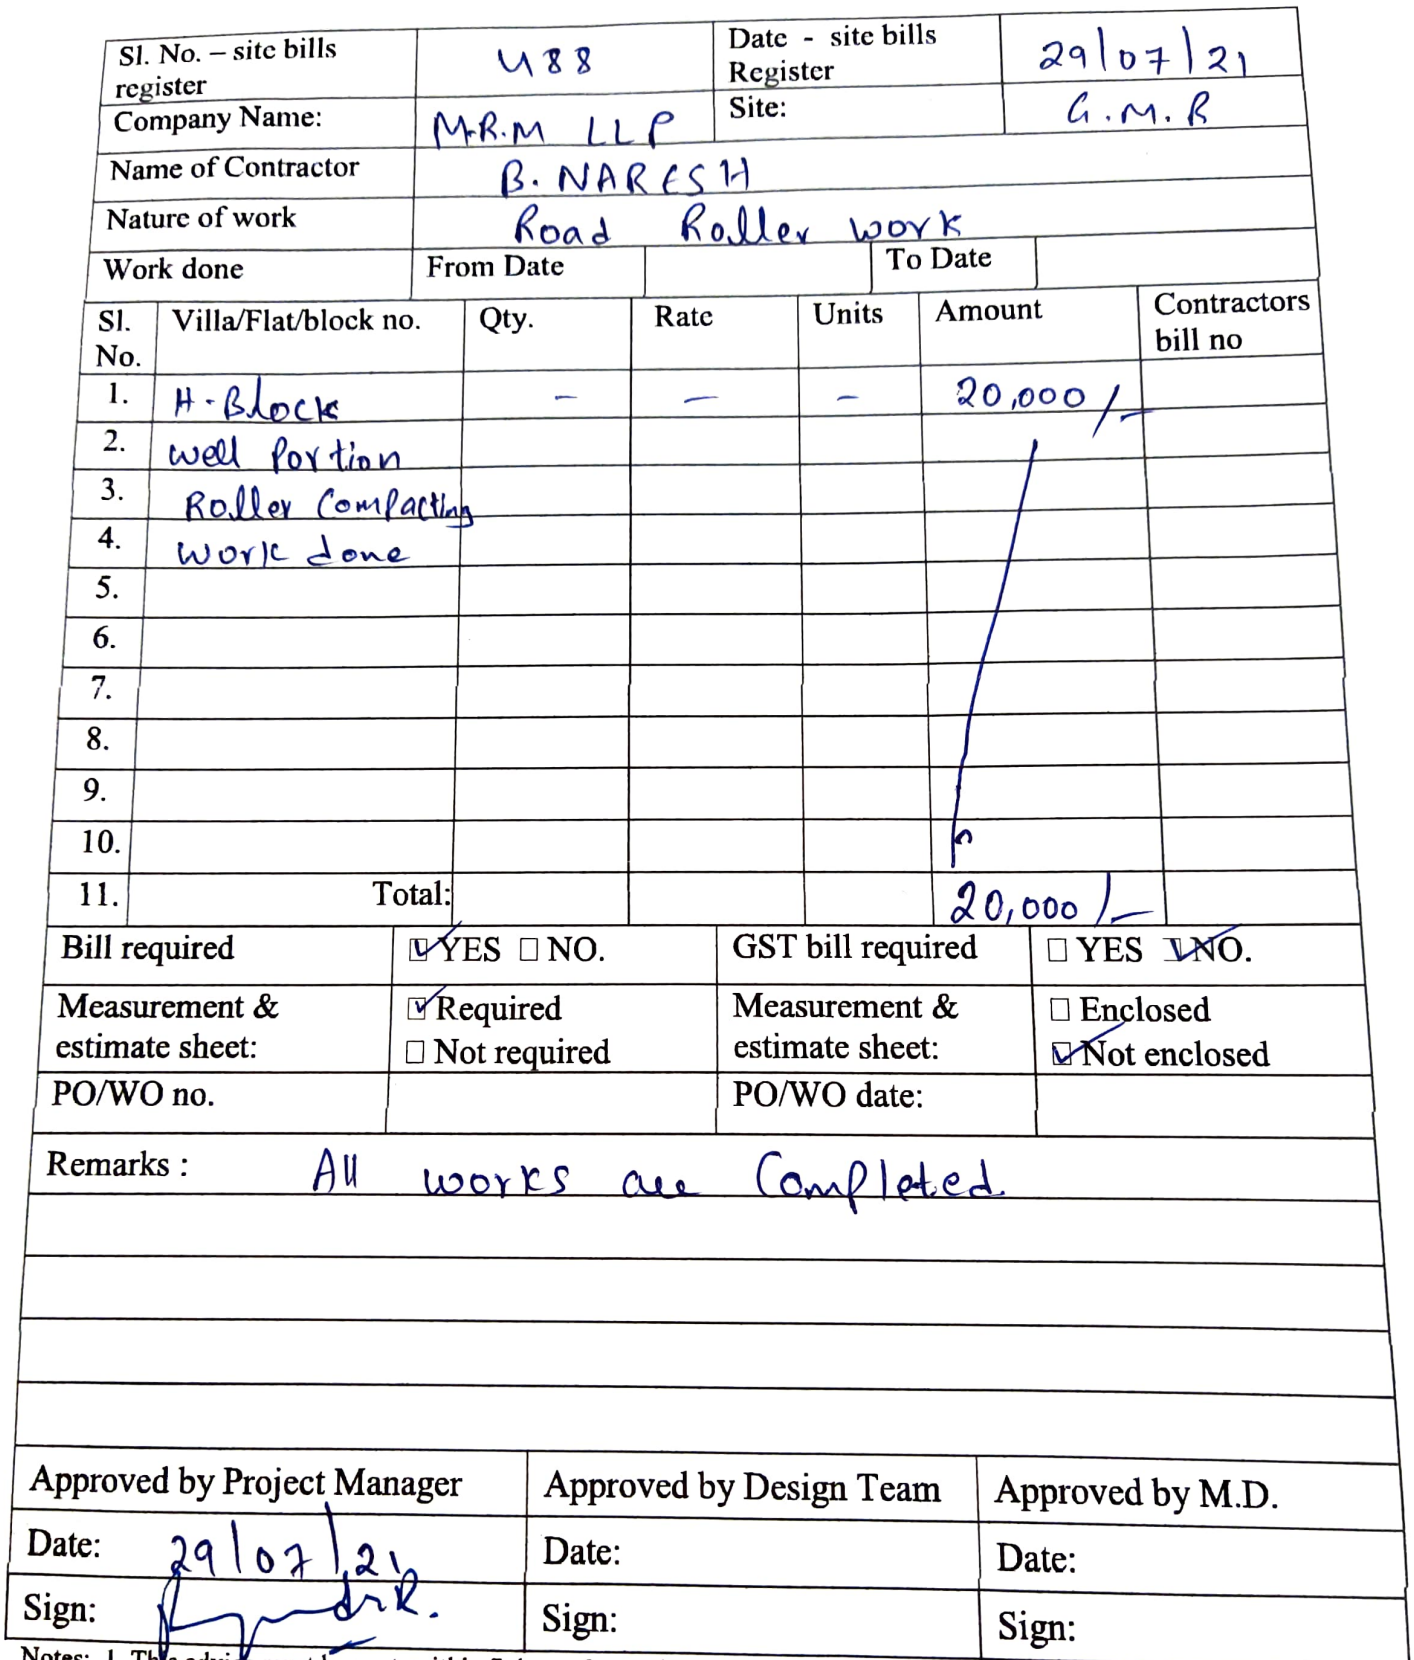 Sl. No. – site bills register 488 Date - site bills Register 29/07/21
Company Name: M.R.M LLP Site: G.M.R
Name of Contractor B. NARESH
Nature of work Road Roller work
Work done From Date To Date
Sl. No. Villa/Flat/block no. Qty. Rate Units Amount Contractors bill no
1. H-Block - - - 20,000/-
2. Well Portion
3. Roller Compacting
4. Work done
5.
6.
7.
8.
9.
10.
11. Total: 20,000/-
Bill required ☑ YES ☐ NO. GST bill required ☐ YES ☑ NO.
Measurement & estimate sheet: ☑ Required ☐ Not required Measurement & estimate sheet: ☐ Enclosed ☑ Not enclosed
PO/WO no. PO/WO date:
Remarks : All works are Completed
Approved by Project Manager Approved by Design Team Approved by M.D.
Date: 29/07/21 Date: Date:
Sign: Sign: Sign:
Notes: 1. This